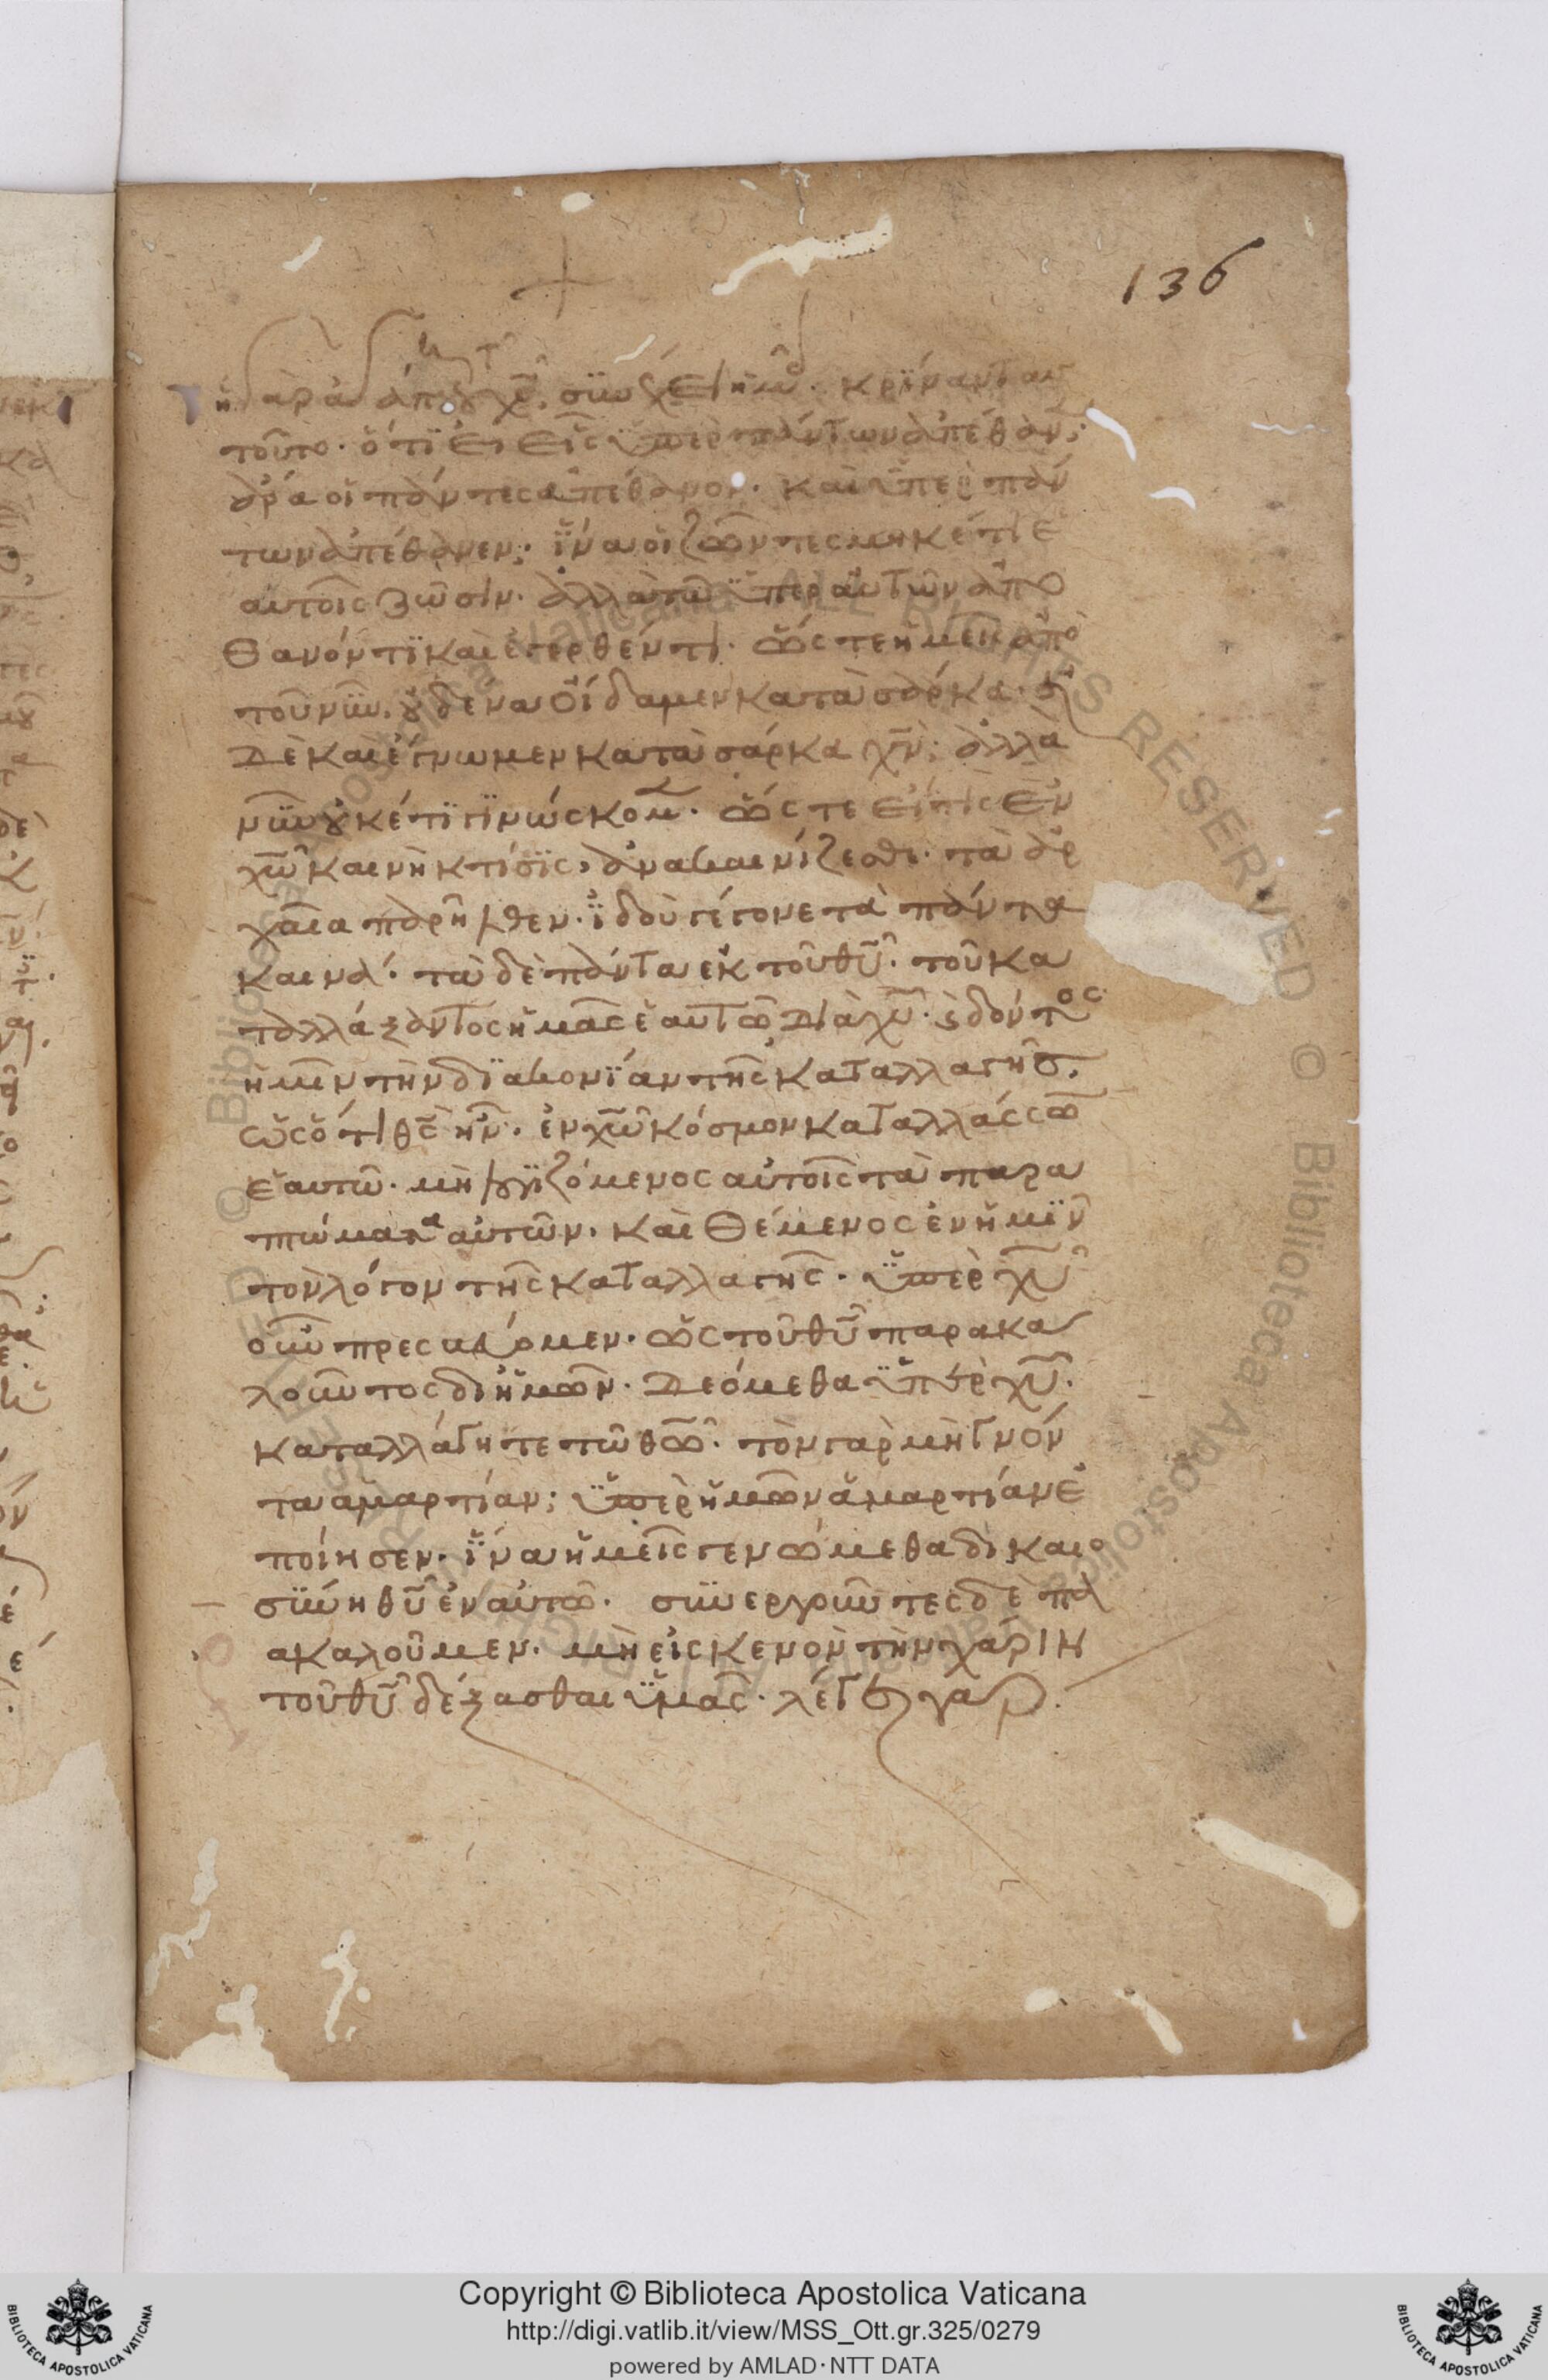 136
ἡ γὰρ ἀγάπη τοῦ χυ̅. συνέχει ἡμᾶς. κρίναντας
τοῦτο. ὅτι εἰ εἷς ὑπερ πάντων ἀπέθανεν·
ἄρα οἱ πάντες ἀπέθανον. καὶ ὑπὲρ πάν
των ἀπέθανεν· ἵνα οἱ ζῶντες μηκέτι ἑ
αυτοῖς ζῶσιν. ἀλλὰ τῶ ὑπερ αὐτῶν ἀπο
θανόντι καὶ ἐγερθέντι. ὥς τε ἡμεῖς ἀπὸ
τοῦ νῦν. οὐδένα οἴδαμεν κατὰ σάρκα. εἰ
δὲ καὶ ἐγνωμεν κατὰ σάρκα χν̅· ἀλλὰ
νῦν οὐκέτι γινώσκομεν. ὥς τε εἴ τις ἐν
χω̅ καινὴ κτίσις, ἀνακαινίζεσθε. τὰ ἀρ
χαῖα παρῆλθεν. ἰδοὺ γέγονε τὰ πάντα
καινά. τὰ δὲ πάντα ἐκ τοῦ θυ̅. τοῦ κα
ταλλάξαντος ἡμᾶς ἑαυτῶ διὰ χυ̅. καὶ δόντος
ἡμῖν τὴν διακονίαν τῆς καταλλαγῆς.
ὡς ὅτι θς̅ ἦν. ἐν χω̅ κόσμον καταλλάσσων
ἑαυτῶ. μὴ λογιζόμενος αὐτοῖς τὰ παρα
πτώματα αὐτῶν. καὶ θέμενος ἐν ἡμῖν
τὸν λόγον τῆς καταλλαγῆς. ὑπὲρ χυ̅
οὖν πρεσβεύομεν. ὡς τοῦ θυ̅ παρακα
λοῦντος δι ἡμῶν. δεόμεθα ὑπὲρ χυ̅.
καταλλάγητε τῶ θω̅. τὸν γὰρ μὴ γνόν
τα ἁμαρτίαν· ὑπὲρ ἡμῶν ἁμαρτίαν ἐ
ποίησεν. ἵνα ἡμεῖς γενώμεθα δικαιο
σύνη θυ̅ ἐν αὐτῶ. συνεργοῦντες δὲ πα
ακαλοῦμεν. μὴ εἰς κενὸν τὴν χάριν
τοῦ θυ̅ δέξασθαι ὑμᾶς. λέγει γαρ.
Copyright © Biblioteca Apostolica Vaticana
http://digi.vatlib.it/view/MSS_Ott.gr.325/0279
powered by AMLAD·NTT DATA